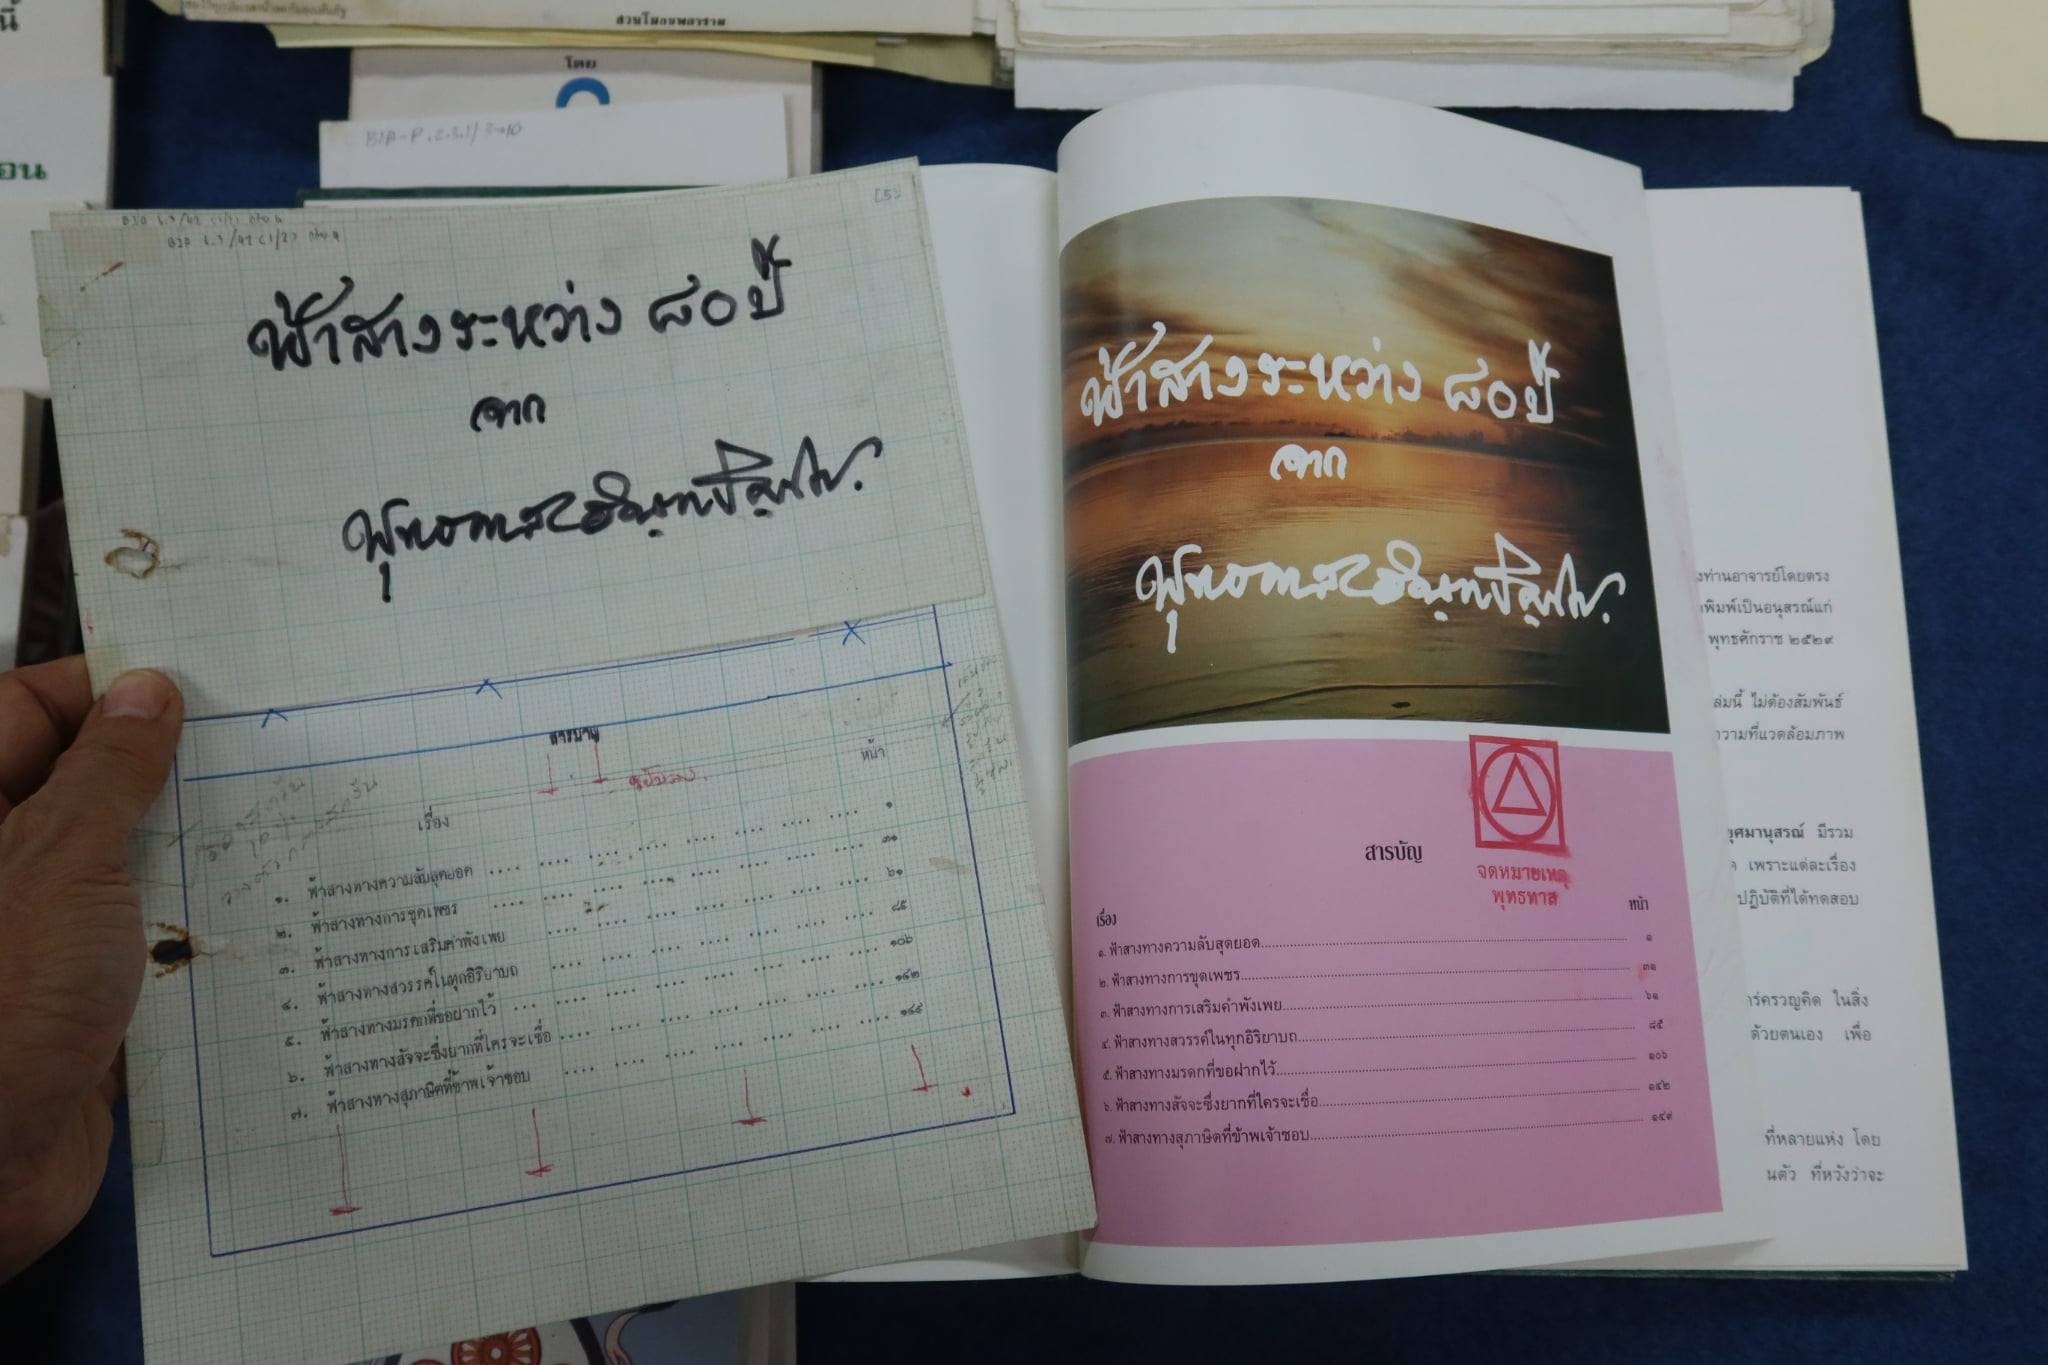 สวนโมกขพลาราม
โดย
BIA-P.2.3.1/3-10
อน
[5]
ฟ้าสางระหว่าง ๘๐ปี
จาก
พุทธทาสอินฺทปัญฺโญ.
สารบาญ
หน้า
เรื่อง
๑. ฟ้าสางทางความลับสุดยอด .... .... .... .... .... .... .... .... ๑
๒. ฟ้าสางทางการขุดเพชร .... .... .... .... .... .... .... .... ๓๑
๓. ฟ้าสางทางการเสริมคำพังเพย .... .... .... .... .... .... .... ๖๑
๔. ฟ้าสางทางสวรรค์ในทุกอิริยาบถ .... .... .... .... .... .... .... ๘๕
๕. ฟ้าสางทางมรดกที่ขอฝากไว้ .... .... .... .... .... .... .... .... ๑๐๖
๖. ฟ้าสางทางสัจจะซึ่งยากที่ใครจะเชื่อ .... .... .... .... .... .... .... ๑๔๒
๗. ฟ้าสางทางสุภาษิตที่ข้าพเจ้าชอบ .... .... .... .... .... .... .... ๑๔๙
ฟ้าสางระหว่าง ๘๐ปี
จาก
พุทธทาสอินฺทปัญฺโญ.
สารบัญ
จดหมายเหตุ
พุทธทาส
เรื่อง หน้า
๑. ฟ้าสางทางความลับสุดยอด.......... ๑
๒. ฟ้าสางทางการขุดเพชร.......... ๓๑
๓. ฟ้าสางทางการเสริมคำพังเพย.......... ๖๑
๔. ฟ้าสางทางสวรรค์ในทุกอิริยาบถ.......... ๘๕
๕. ฟ้าสางทางมรดกที่ขอฝากไว้.......... ๑๐๖
๖. ฟ้าสางทางสัจจะซึ่งยากที่ใครจะเชื่อ.......... ๑๔๒
๗. ฟ้าสางทางสุภาษิตที่ข้าพเจ้าชอบ.......... ๑๔๙
งท่านอาจารย์โดยตรง
พิมพ์เป็นอนุสรณ์แก่
พุทธศักราช ๒๕๒๙
ล่มนี้ ไม่ต้องสัมพันธ์
ความที่แวดล้อมภาพ
ขุศมานุสรณ์ มีรวม
เพราะแต่ละเรื่อง
ปฏิบัติที่ได้ทดสอบ
าร่ครวญคิด ในสิ่ง
ด้วยตนเอง เพื่อ
ที่หลายแห่ง โดย
นตัว ที่หวังว่าจะ